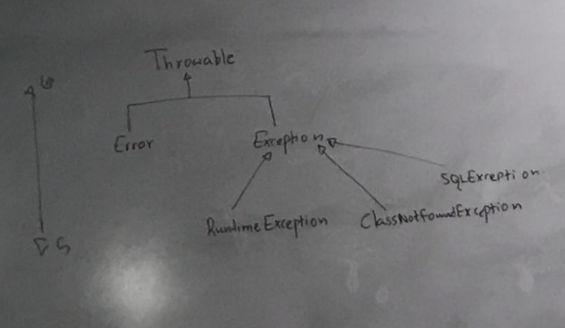 Throwable
Error
Exception
SQLException
RuntimeException
ClassNotFoundException